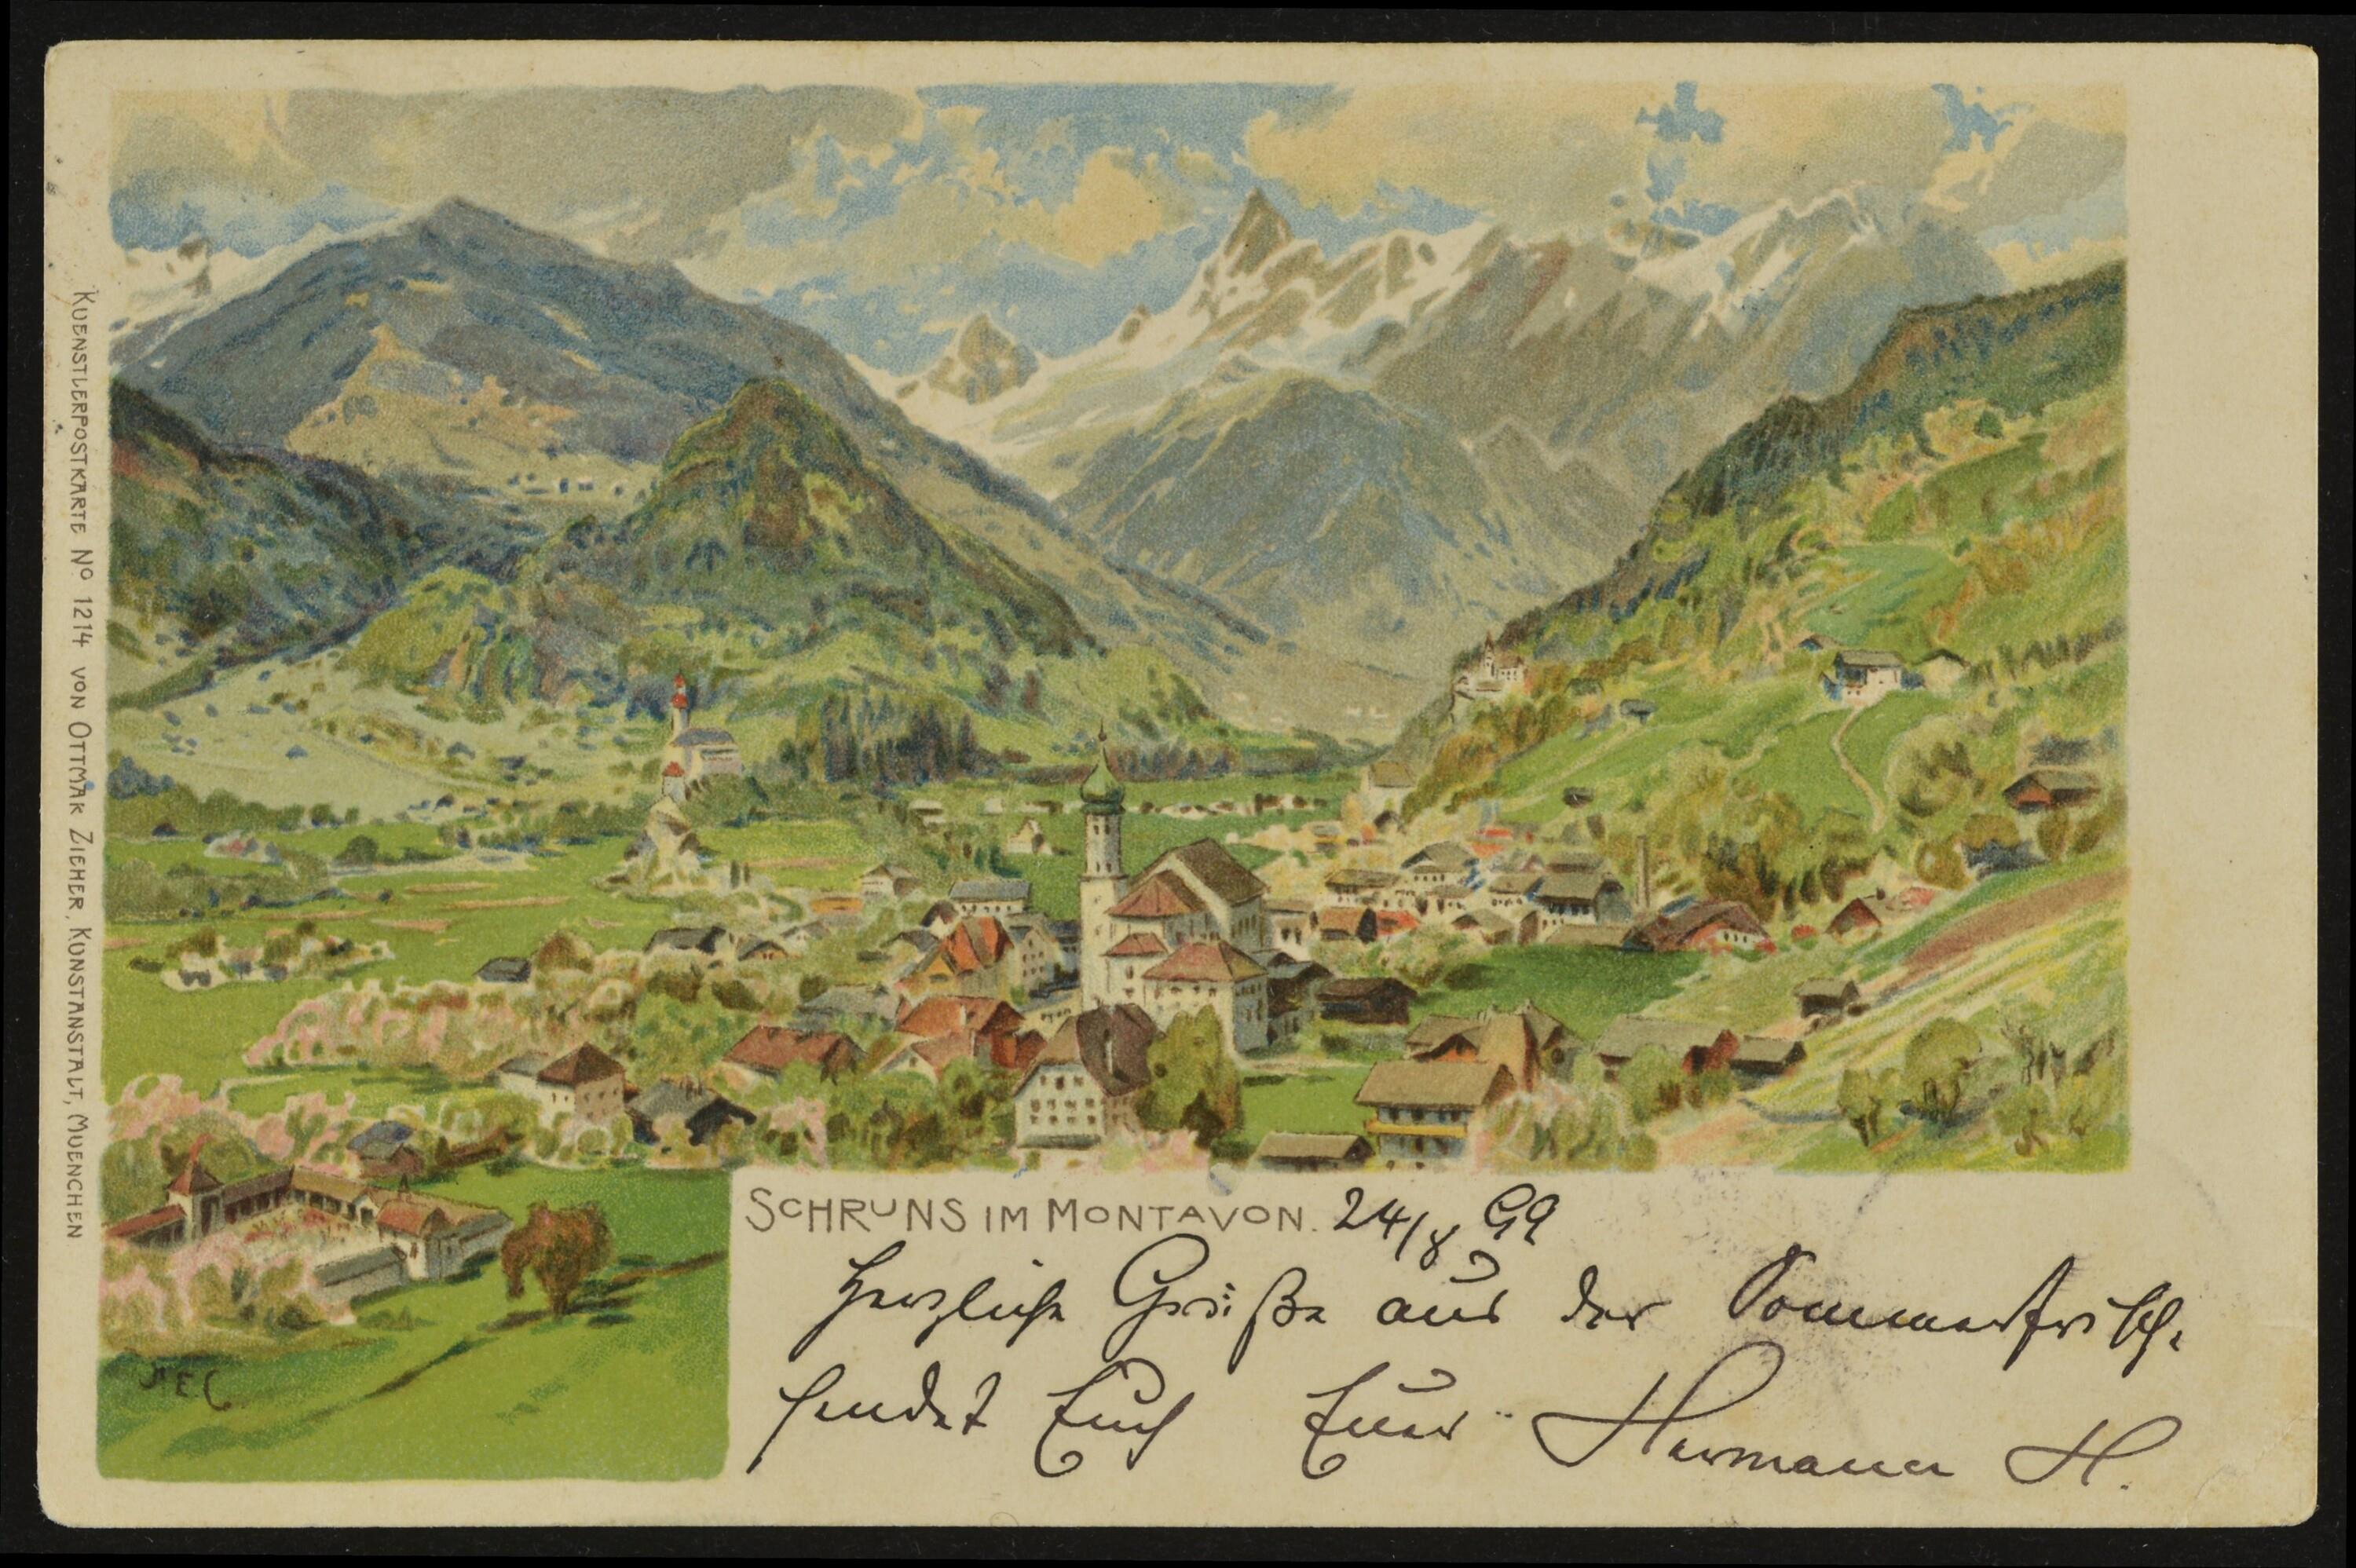 KUENSTLERPOSTKARTE No 1214 VON OTTMAR ZIEHER, KUNSTANSTALT, MUENCHEN
SCHRUNS IM MONTAVON. 24/8 99
Herzliche Grüße aus der Sommerfrisch.
sendet Euch Euer Hermann H.